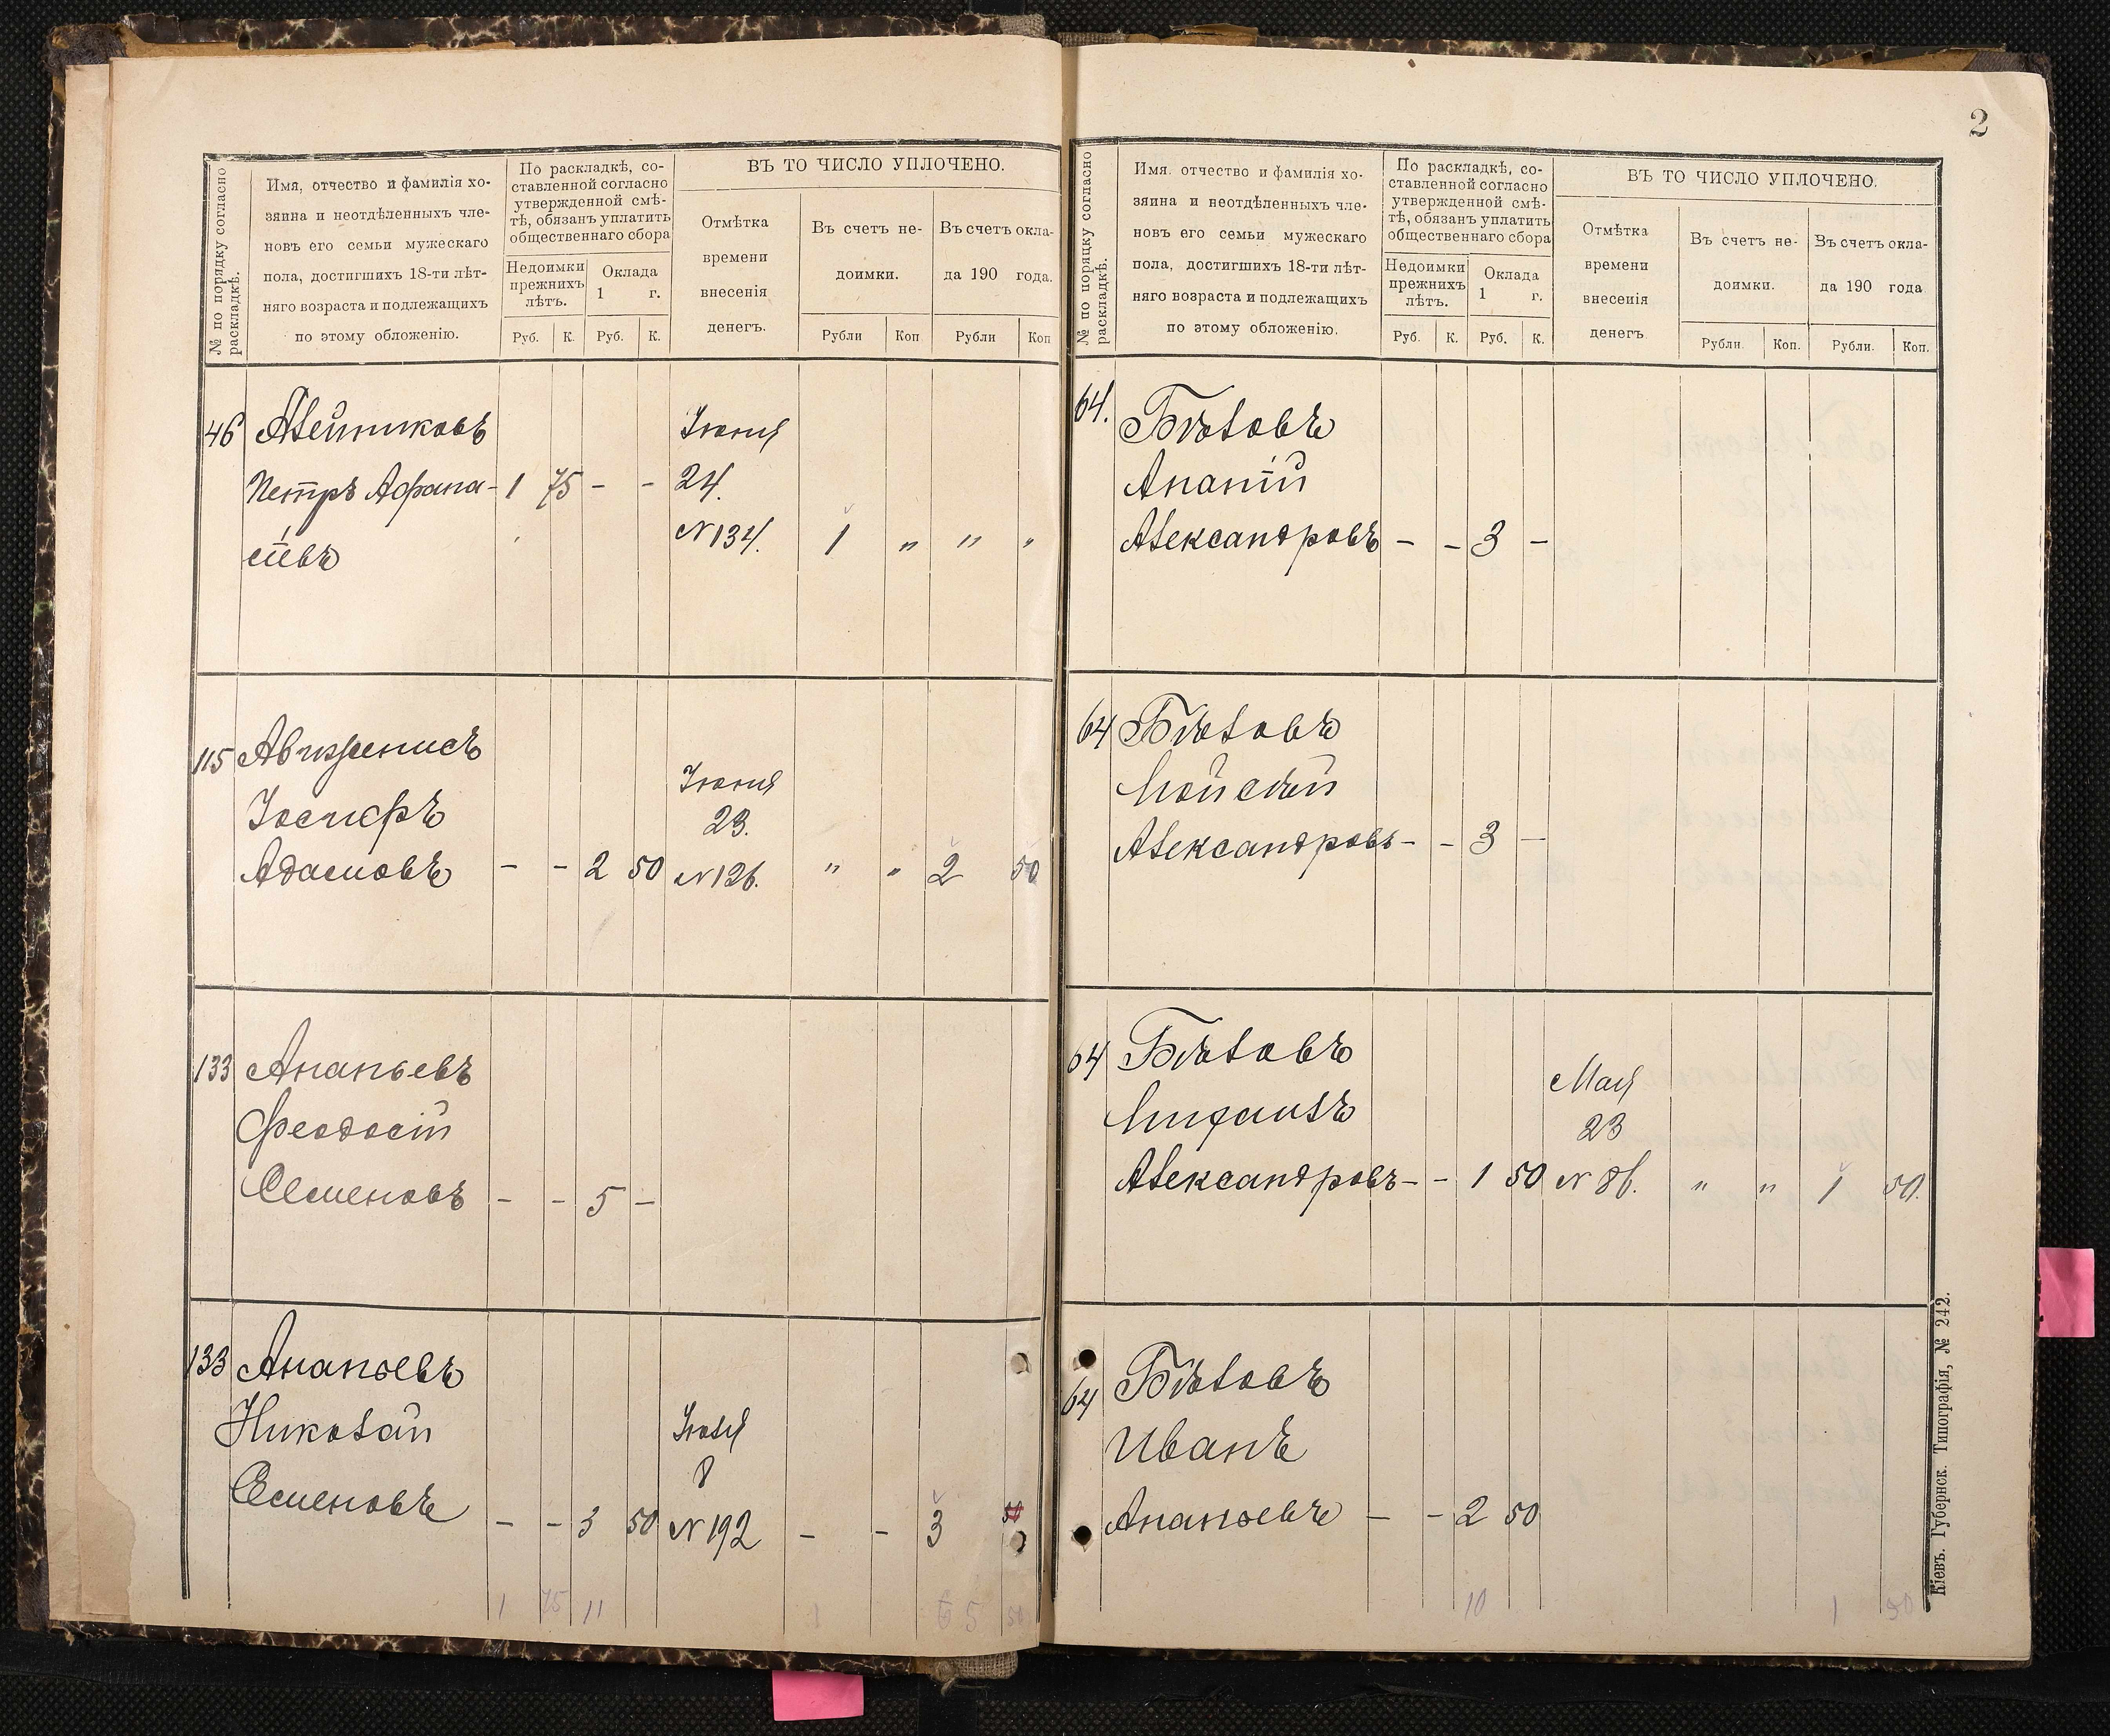 № по порядку согласно
раскладкѣ.
Имя, отчество и фамилія хо-
зяина и неотдѣленныхъ чле-
новъ его семьи мужескаго
пола, достигшихъ 18-ти лѣт-
няго возраста и подлежащихъ
по этому обложенію.
По раскладкѣ, со-
ставленной согласно
утвержденной смѣ-
тѣ, обязанъ уплатить
общественнаго сбора
Недоимки
прежнихъ
лѣтъ.
Оклада
1 г.
Руб. К. Руб. К.
ВЪ ТО ЧИСЛО УПЛОЧЕНО.
Отмѣтка
времени
внесенія
денегъ.
Въ счетъ не-
доимки.
Въ счетъ окла-
да 190 года.
Рубли Коп Рубли Коп
46 Алейниковъ Іюня
Петръ Афана- 1 75 - - 24.
сіевъ N134. 1 " " "
115
Іосифъ Іюня
23.
Адамовъ - - 2 50 N126. " " 2 50
133 Ананьевъ
Феодосій
Семеновъ - - 5 -
133 Ананьевъ
Николай Іюля
8
Семеновъ - - 3 50 N192 - - 3 50
1 75 11 1 6 5 50
2
№ по порядку согласно
раскладкѣ.
Имя. отчество и фамилія хо-
зяина и неотдѣленныхъ чле-
новъ его семьи мужескаго
пола, достигшихъ 18-ти лѣт-
няго возраста и подлежащихъ
по этому обложенію.
По раскладкѣ, со-
ставленной согласно
утвержденной смѣ-
тѣ, обязанъ уплатить
общественнаго сбора
Недоимки
прежнихъ
лѣтъ.
Оклада
1 г.
Руб. К. Руб. К.
ВЪ ТО ЧИСЛО УПЛОЧЕНО.
Отмѣтка
времени
внесенія
денегъ
Въ счетъ не-
доимки.
Въ счетъ окла-
да 190 года
Рубли. Коп. Рубли. Коп.
64. Бѣловъ
Ананій
Александровъ - - 3 -
64 Бѣловъ
Мойсѣй
Александровъ - - 3 -
64 Бѣловъ Мая
Михаилъ 23
Александровъ - - 1 50 N 86. " " 1 50.
64 Бѣловъ
Иванъ
Ананьевъ - - 2 50
10 1 50
Кіевъ. Губернск. Типографія, № 242.